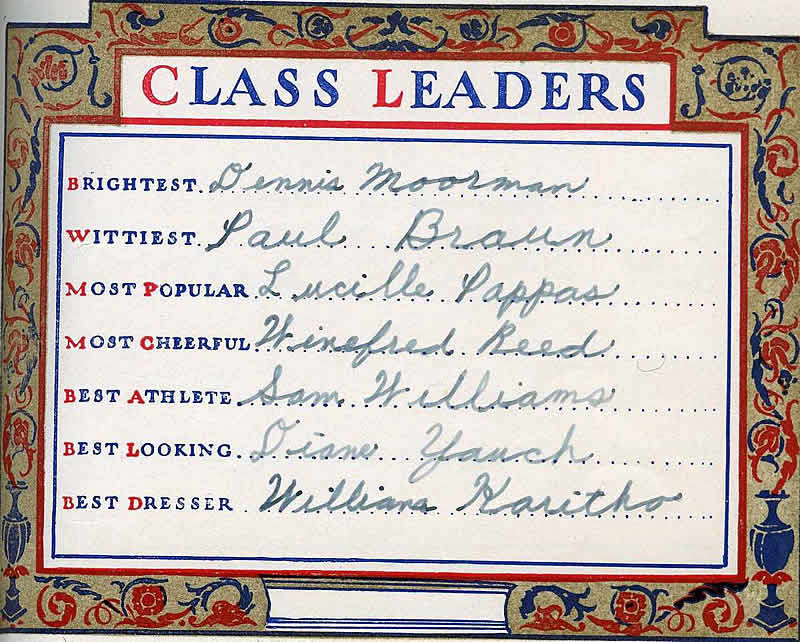 CLASS LEADERS
BRIGHTEST. Dennis Moorman
WITTIEST. Paul Braun
MOST POPULAR Lucille Pappas
MOST CHEERFUL Winefred Reed
BEST ATHLETE Sam Williams
BEST LOOKING. Diane Yauch
BEST DRESSER Williana Karitho